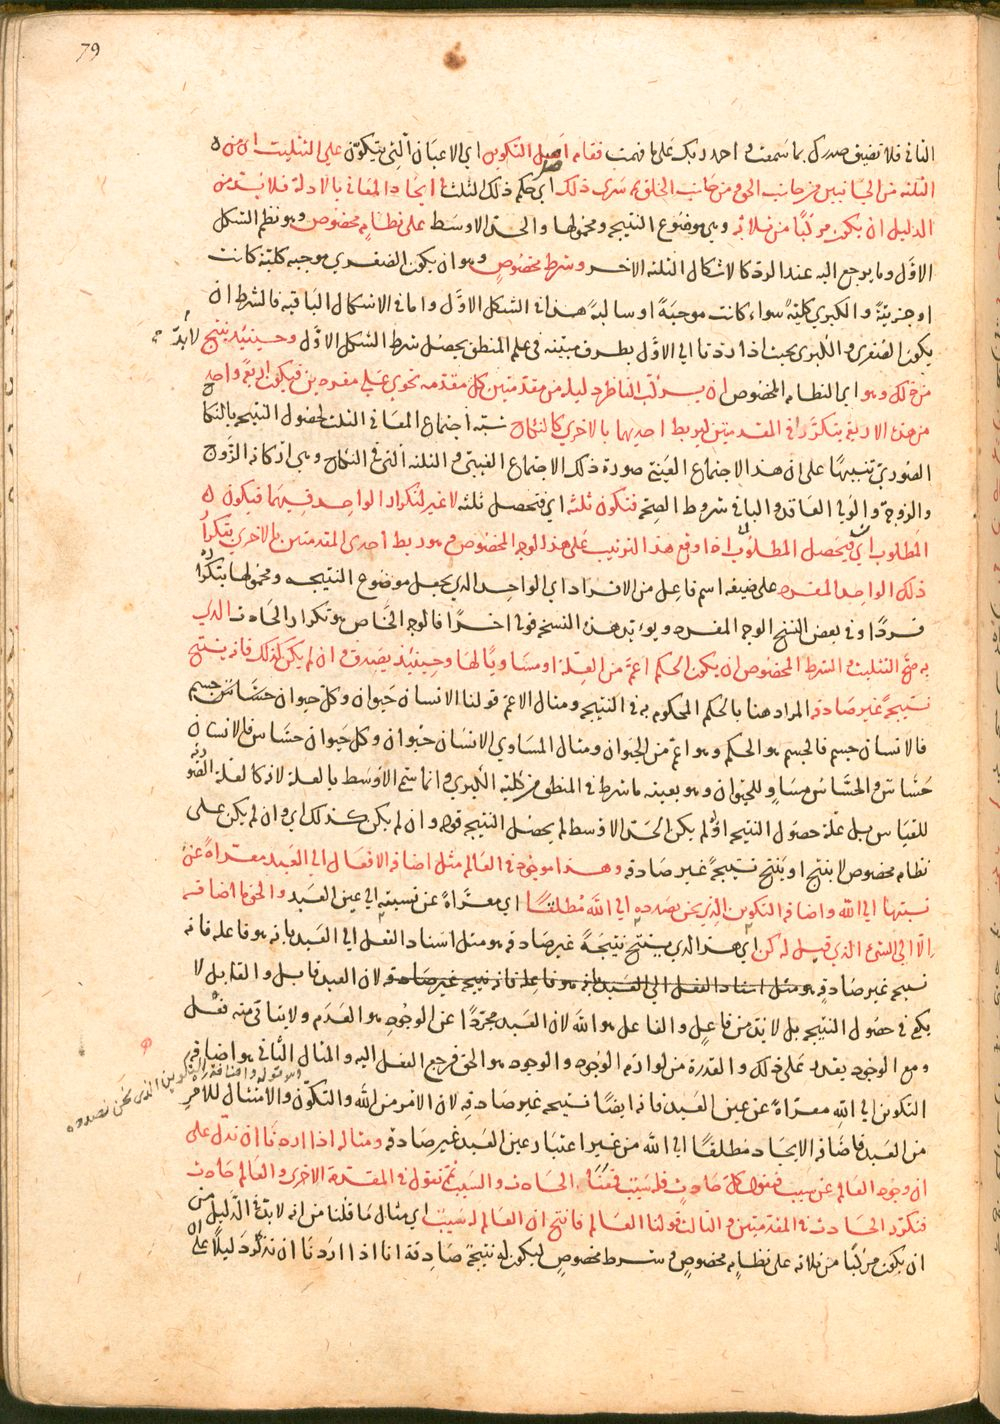 79
الثاني فلا تضيق صدرك بما سمعت واحد ربك على ما فهمت فقام اصل التكوين اي الاعيان التي يتكون على التثليث اي من
الثلثة من الجانبين من جانب الحق ومن جانب الخلق ثم سرى ذلك اي حكم ذلك التثليث في ايجاد المعاني بالادلة فلا بد من
الدليل ان يكون مركبا من ثلاثة وهي موضوع النتيجة ومحمولها والحد الاوسط على نظام مخصوص وهو نظم الشكل
الاول وما يرجع اليه عند الرد كالاشكال الثلثة الاخر وشرط مخصوص وهو ان يكون الصغرى موجبة كلية كانت
او جزئية والكبرى كلية سواء كانت موجبة او سالبة هذا في الشكل الاول واما في الاشكال الباقية فالشرط ان
يكون الصغرى والكبرى بحيث اذا رددنا الى الاول بطرق مبينة في علم المنطق يحصل شرط الشكل الاول وحينئذ ينتج لا بد
من ذلك وهو اي النظام المخصوص ان يركب الناظر دليله من مقدمتين كل مقدمة تحوي على مفردين فيكون اربعة واحد
من هذه الاربعة يتكرر في المقدمتين ليربط احديهما بالاخرى كالنكاح شبه اجتماع المعاني الثلث لحصول النتيجة بالنكاح
الصوري تنبيها على ان هذا الاجتماع العيني صورة ذلك الاجتماع الغيبي والثلثة التي في النكاح وهي اركانه الزوج
والزوجة والولي العاقد والباقي شروط الصحة فتكون ثلثة اي فتحصل ثلثة لا غير لتكرار الواحد فيهما فيكون
المطلوب اي فيحصل المطلوب اذا وقع هذا الترتيب على هذا الوجه المخصوص وهو ربط احدى المقدمتين بالاخرى بتكرار
ذلك الواحد المفرد على صيغة اسم فاعل من الافراد اي الواحد الذي يجعل موضوع النتيجة ومحمولها بتكراره
فردا وفي بعض النسخ الوجه المفرد ويؤيد هذه النسخة قوله اخرا فالوجه الخاص هو تكرار الحادث الذي
به صح التثليث والشرط المخصوص ان يكون الحكم اعم من العلة او مساويا لها وحينئذ يصدق وان لم يكن كذلك فانه ينتج
نتيجة غير صادقة المراد هنا بالحكم المحكوم به في النتيجة ومثال الاعم قولنا الانسان حيوان وكل حيوان حساس جسم
فالانسان جسم فالجسم هو الحكم وهو اعم من الحيوان ومثال المساوي الانسان حيوان وكل حيوان حساس فالانسان
حساس والحساس مساو للحيوان وهو بعينه ما شرط في المنطق من كلية الكبرى وانما سمي الاوسط بالعلة لانه كالعلة الصورية
للقياس بل علة حصول النتيجة اذ لو لم يكن الحد الاوسط لم يحصل النتيجة قوله وان لم يكن كذلك اي وان لم يكن على
نظام مخصوص لا ينتج او ينتج نتيجة غير صادقة وهذا موجود في العالم مثل اضافة الافعال الى العبد معراة عن
نسبتها الى الله واضافة التكوين الذي نحن بصدده الى الله مطلقا اي معراة عن نسبته الى عين العبد والحق ما اضافه
الا الى الشيء الذي قيل له كن اي هذا الذي ينتج نتيجة غير صادقة هو مثل اسناد الفعل الى العبد بانه هو فاعله فانه
نتيجة غير صادقة هو مثل اسناد الفعل الى العبد بانه هو فاعله فانه نتيجة غير صادقة لان العبد قابل والقابل لا
يكفي في حصول النتيجة بل لا بد من فاعل والفاعل هو الله لان العبد مجردا عن الوجود هو العدم ولا يتاتى منه فعل
ومع الوجود يقدر على ذلك والقدرة من لوازم الوجود والوجود هو الحق فرجع الفعل اليه والمثال الثاني هو اضافة
وهو قوله واضافة التكوين الذي نحن بصدده
التكوين الى الله معراة عن عين العبد فانه ايضا نتيجة غير صادقة لان الامر من الله والتكون والامتثال للامر
من العبد فاضافة الايجاد مطلقا الى الله من غير اعتبار عين العبد غير صادقة ومثاله اذا اردنا ان ندل على
ان وجود العالم عن سبب فنقول كل حادث فله سبب فمعنا الحادث والسبب ثم نقول في المقدمة الاخرى والعالم حادث
فتكرر الحادث في المقدمتين والثالث قولنا العالم فانتج ان العالم له سبب اي مثال ما قلنا من انه لا بد في الدليل من
ان يكون مركبا من ثلاثة على نظام مخصوص وشرط مخصوص ليكون له نتيجة صادقة انا اذا اردنا ان نورد دليلا على ان